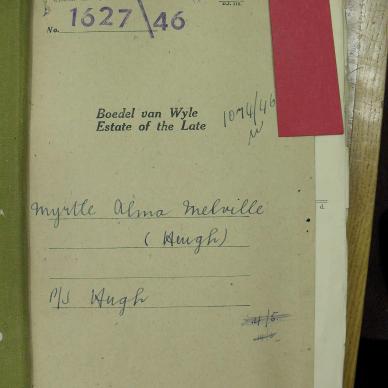 No. 1627/46
Boedel van Wyle
Estate of the Late
1074/46
Myrtle Alma Melville
(Hugh)
P/S Hugh